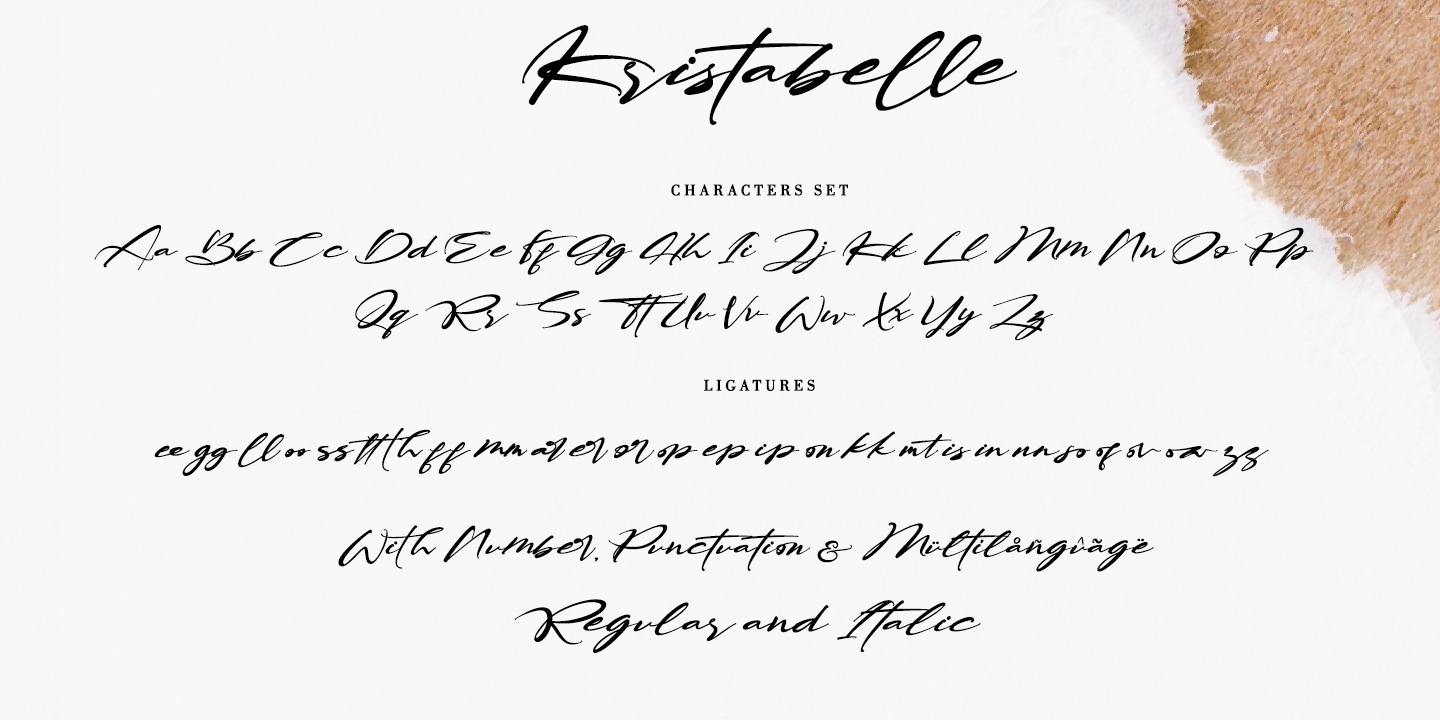 Kristabelle
CHARACTERS SET
Aa Bb Cc Dd Ee Ff Gg Hh Ii Jj Kk Ll Mm Nn Oo Pp
Qq Rr Ss Tt Uu Vv Ww Xx Yy Zz
LIGATURES
ee gg ll oo ss tt th ff mm ar er or op ep ip on kk mt is in nn so of ov oa zz
With Number, Punctuation & Mültilåñgûãgë
Regular and Italic